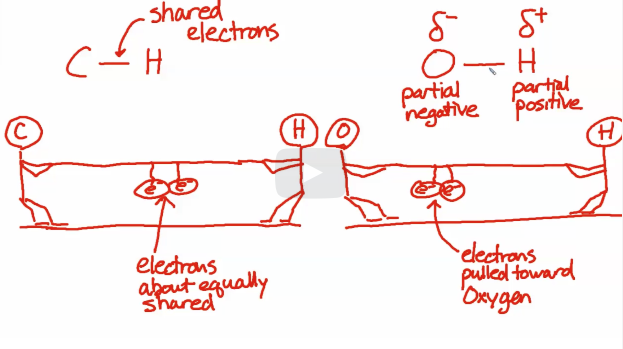 shared
electrons
C — H
δ⁻ δ⁺
O — H
partial
negative
partial
positive
C H O H
e⁻ e⁻ e⁻ e⁻
electrons
about equally
shared
electrons
pulled toward
Oxygen